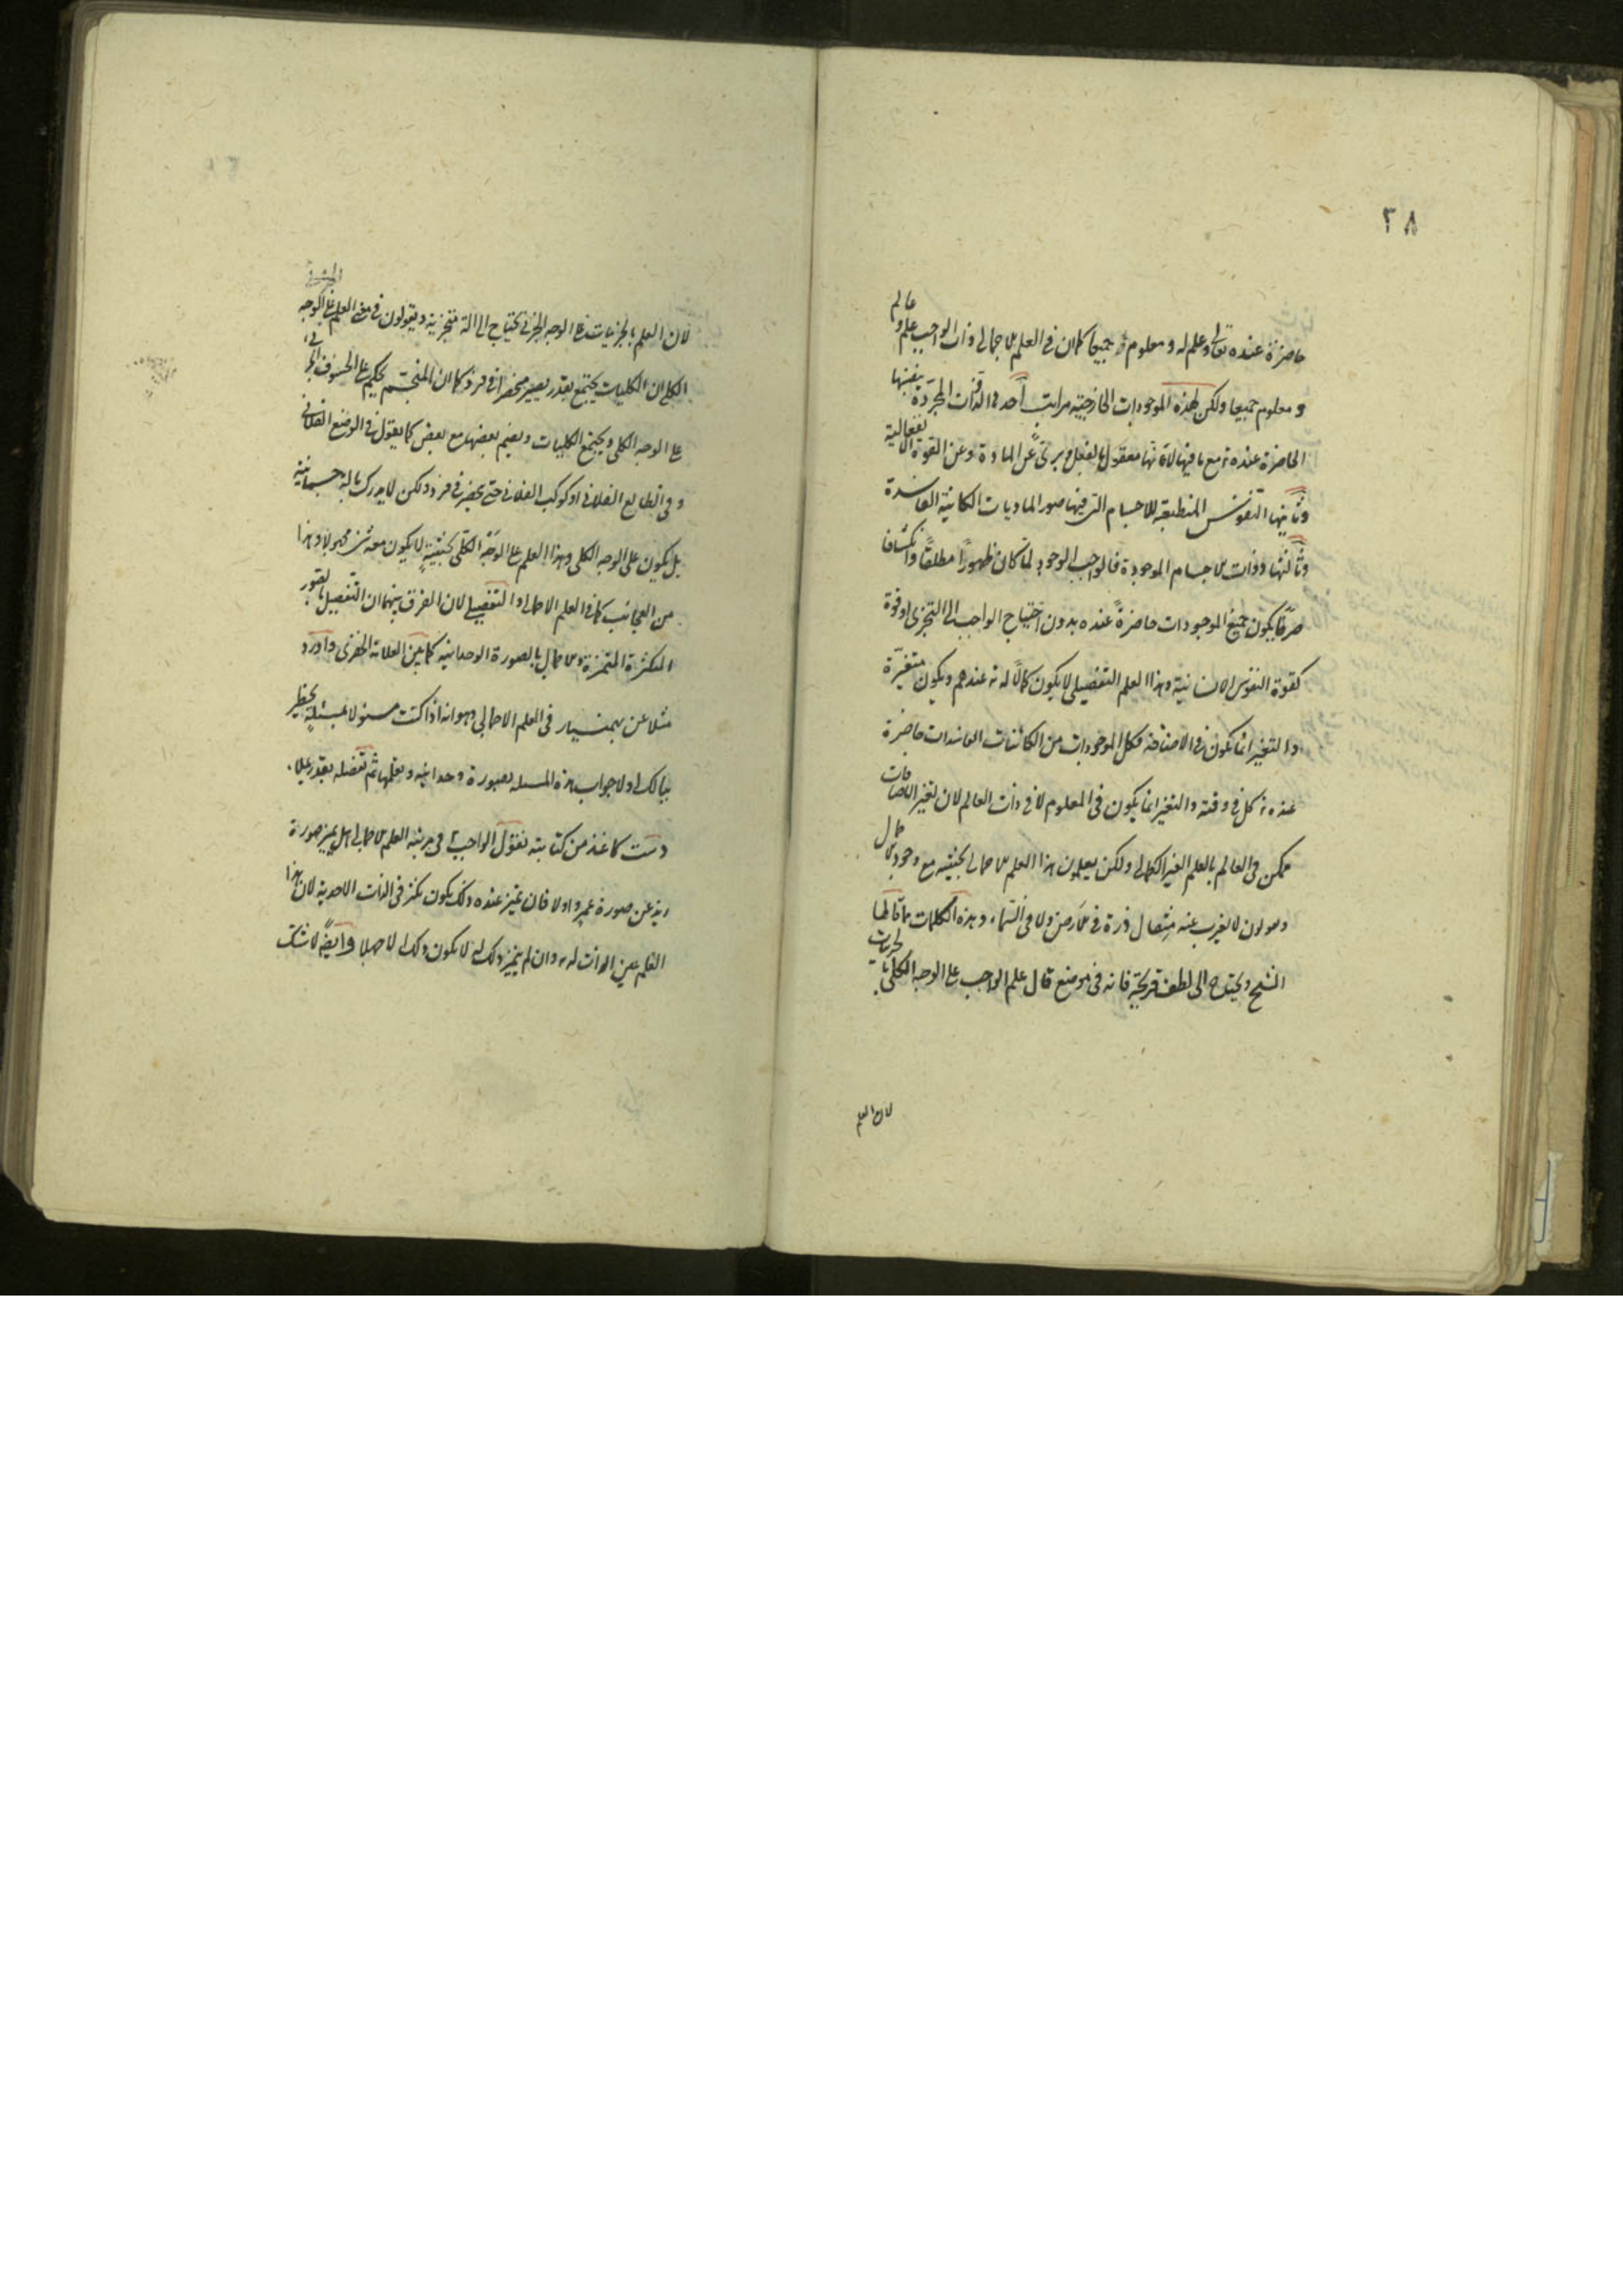 ٣٨
حاضرة عنده تعالى وعلم له ومعلوم له جميعا كما ان في العلم الاجمالي ذات الواجب علم وعالم
ومعلوم جميعا ولكن لهذه الموجودات الخارجية مراتب أحدها الذات المجردة بنفسها
الحاضرة عنده تع مع ما فيها لانها معقول بالفعل وبرئ عن المادة وعن القوة الانفعالية
وثانيها النفوس المنطبعة للاجسام التي فيها صور الماديات الكائنة الفاسدة
وثالثها ذوات الاجسام الموجودة فالواجب الوجود لما كان ظهورا مطلقا وانكشافا
صرفا يكون جميع الموجودات حاضرة عنده بدون احتياج الواجب الى التجزى او قوة
كقوة النفوس الانسانية وهذا العلم التفصيلى لا يكون كمالا له تع عندهم ويكون متغيرة
والتغير انما يكون في الاضافة فكل الموجودات من الكائنات الفاسدات حاضرة
عنده تع كل في وقته والتغير انما يكون في المعلوم لا في ذات العالم لان تغير الاضافات
ممكن في العالم بالعلم الغير الكمالى ولكن يعلمون هذا العلم الاجمالى بحيثية مع وجود الاجمال
ويقولون لا يعزب عنه مثقال ذرة في الارض ولا في السماء وهذه الكلمات مما قالها
الشيخ ويحتاج الى لطف قريحة فانه في موضع قال علم الواجب على الوجه الكلى بالجزيات
لان العلم
لان العلم بالجزيات على الوجه الجزئى يحتاج الى الة متجزية ويقولون في معنى العلم على الوجه
الكلى ان الكليات يجتمع بقدر يصير منحصرا في فرد كما ان المنجم يحكم على الخسوف الجزئى
على الوجه الكلى ويجتمع الكليات ويضم بعضها مع بعض كما يقول في الوضع الفلانى
وفي الطالع الفلانى او كوكب الفلانى حتى يحضر في فرد ولكن لا يدرك بالة جسمانية
بل يكون على الوجه الكلى وهذا العلم على الوجه الكلى بحيثية لا يكون معه شئ مجهولا وهذا
من العجائب كما في العلم الاجمالى والتفصيلى لان الفرق بينهما ان التفصيل بالصور
المتكثرة المتميزة والاجمال بالصورة الوحدانية كما بين العلامة الخفرى واورد
مثلا عن بهمنيار في العلم الاجمالى وهو انه اذا كنت مسئولا بمسئلة يخطر
ببالك اولا جواب هذه المسئله بصورة وحدانية وتعلمها ثم تفصله بقدر يملا
دست كاغذ من كتابته نقول الواجب تع في مرتبة العلم الاجمالى هل يميز صورة
زيد عن صورة عمرو او لا فان تميز عنده ذلك يكون تكثر في الذات الاحدية لان هذا
العلم عين الذات له تع وان لم يتميز ذلك له لا يكون ذلك الا جهلا وايضا لا شك